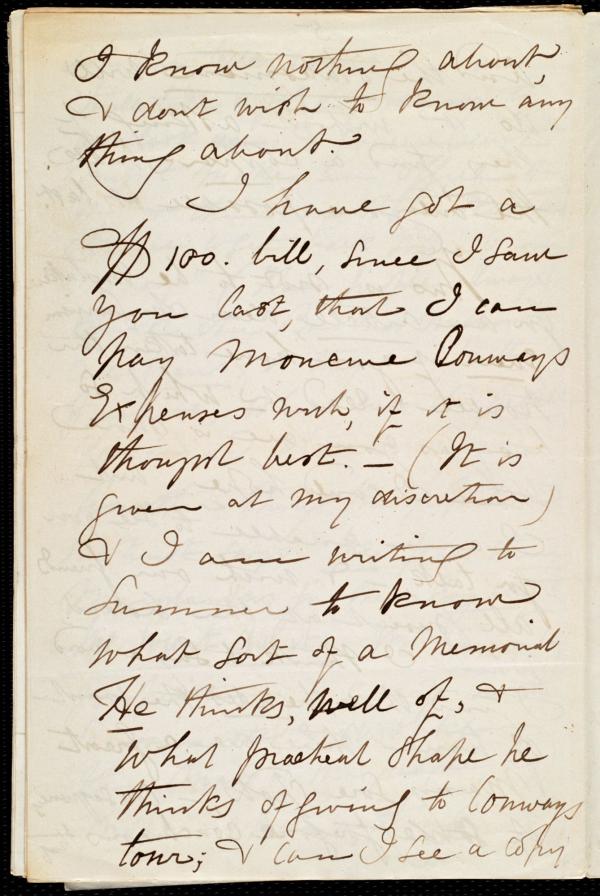 I know nothing about,
& dont wish to know any
thing about.
I have got a
$100. bill, since I saw
you last, that I can
pay Moncure Conways
Expenses with, if it is
thought best. — (It is
given at my discretion)
& I am writing to
Sumner to know
what sort of a Memorial
He thinks, well of, &
what practical shape he
thinks of giving to Conways
tour; & can I see a copy